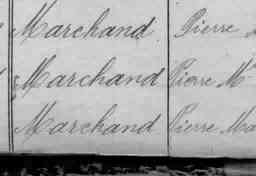 Marchand Pierre
Marchand Pierre M
Marchand Pierre Ma